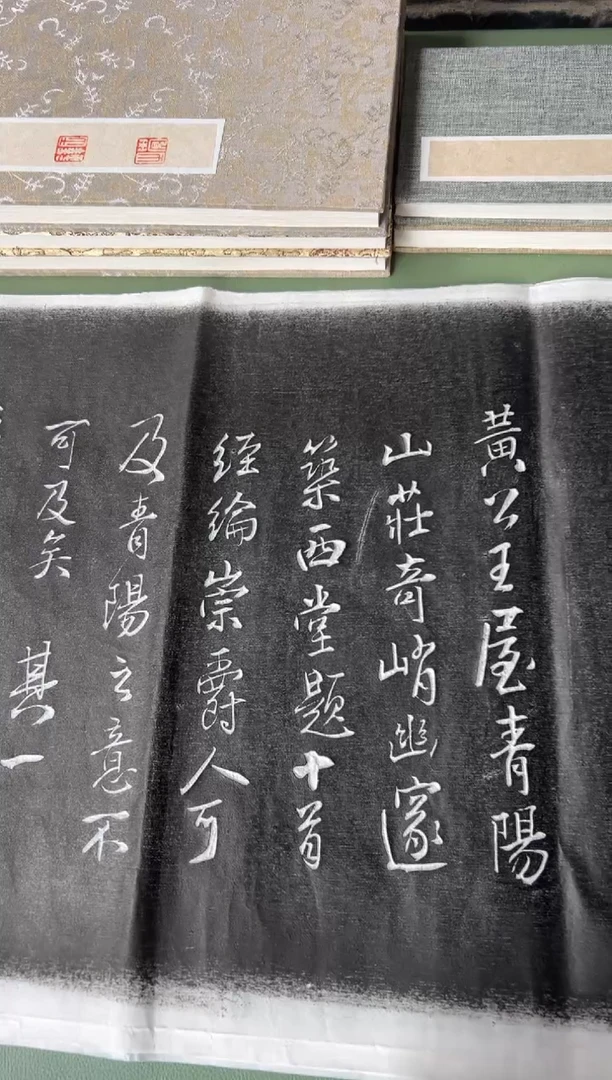 黃公王屋青陽
山莊奇峭幽邃
築西堂題十首
經綸崇爵人可
及青陽之意不
可及矣
其一